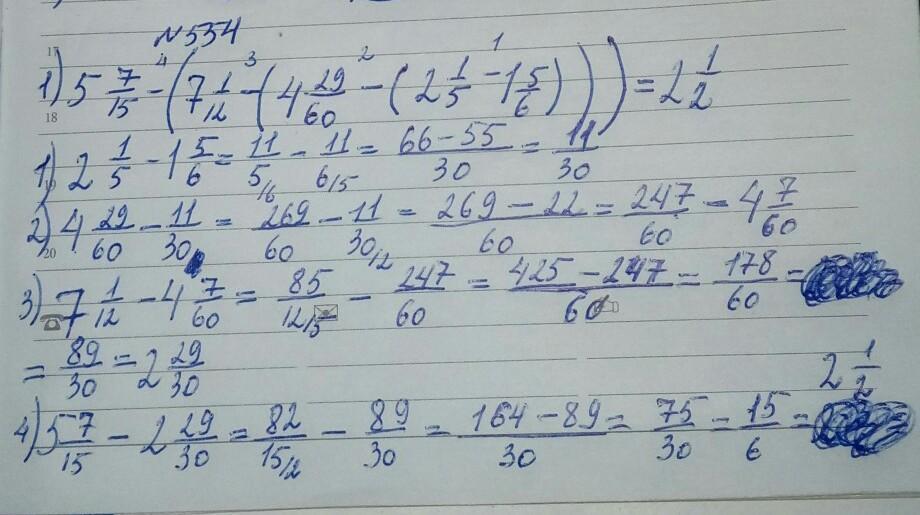 №534
17
1) 5 7/15 - (7 1/12 - (4 29/60 - (2 1/5 - 1 5/6))) = 2 1/2
4 3 2 1
18
1) 2 1/5 - 1 5/6 = 11/5/6 - 11/6/5 = (66-55)/30 = 11/30
2) 4 29/60 - 11/30 = 269/60 - 11/30/2 = (269-22)/60 = 247/60 = 4 7/60
20
3) 7 1/12 - 4 7/60 = 85/12/5 - 247/60 = (425-247)/60 = 178/60 =
= 89/30 = 2 29/30
2 1/2
4) 5 7/15 - 2 29/30 = 82/15/2 - 89/30 = (164-89)/30 = 75/30 = 15/6 =